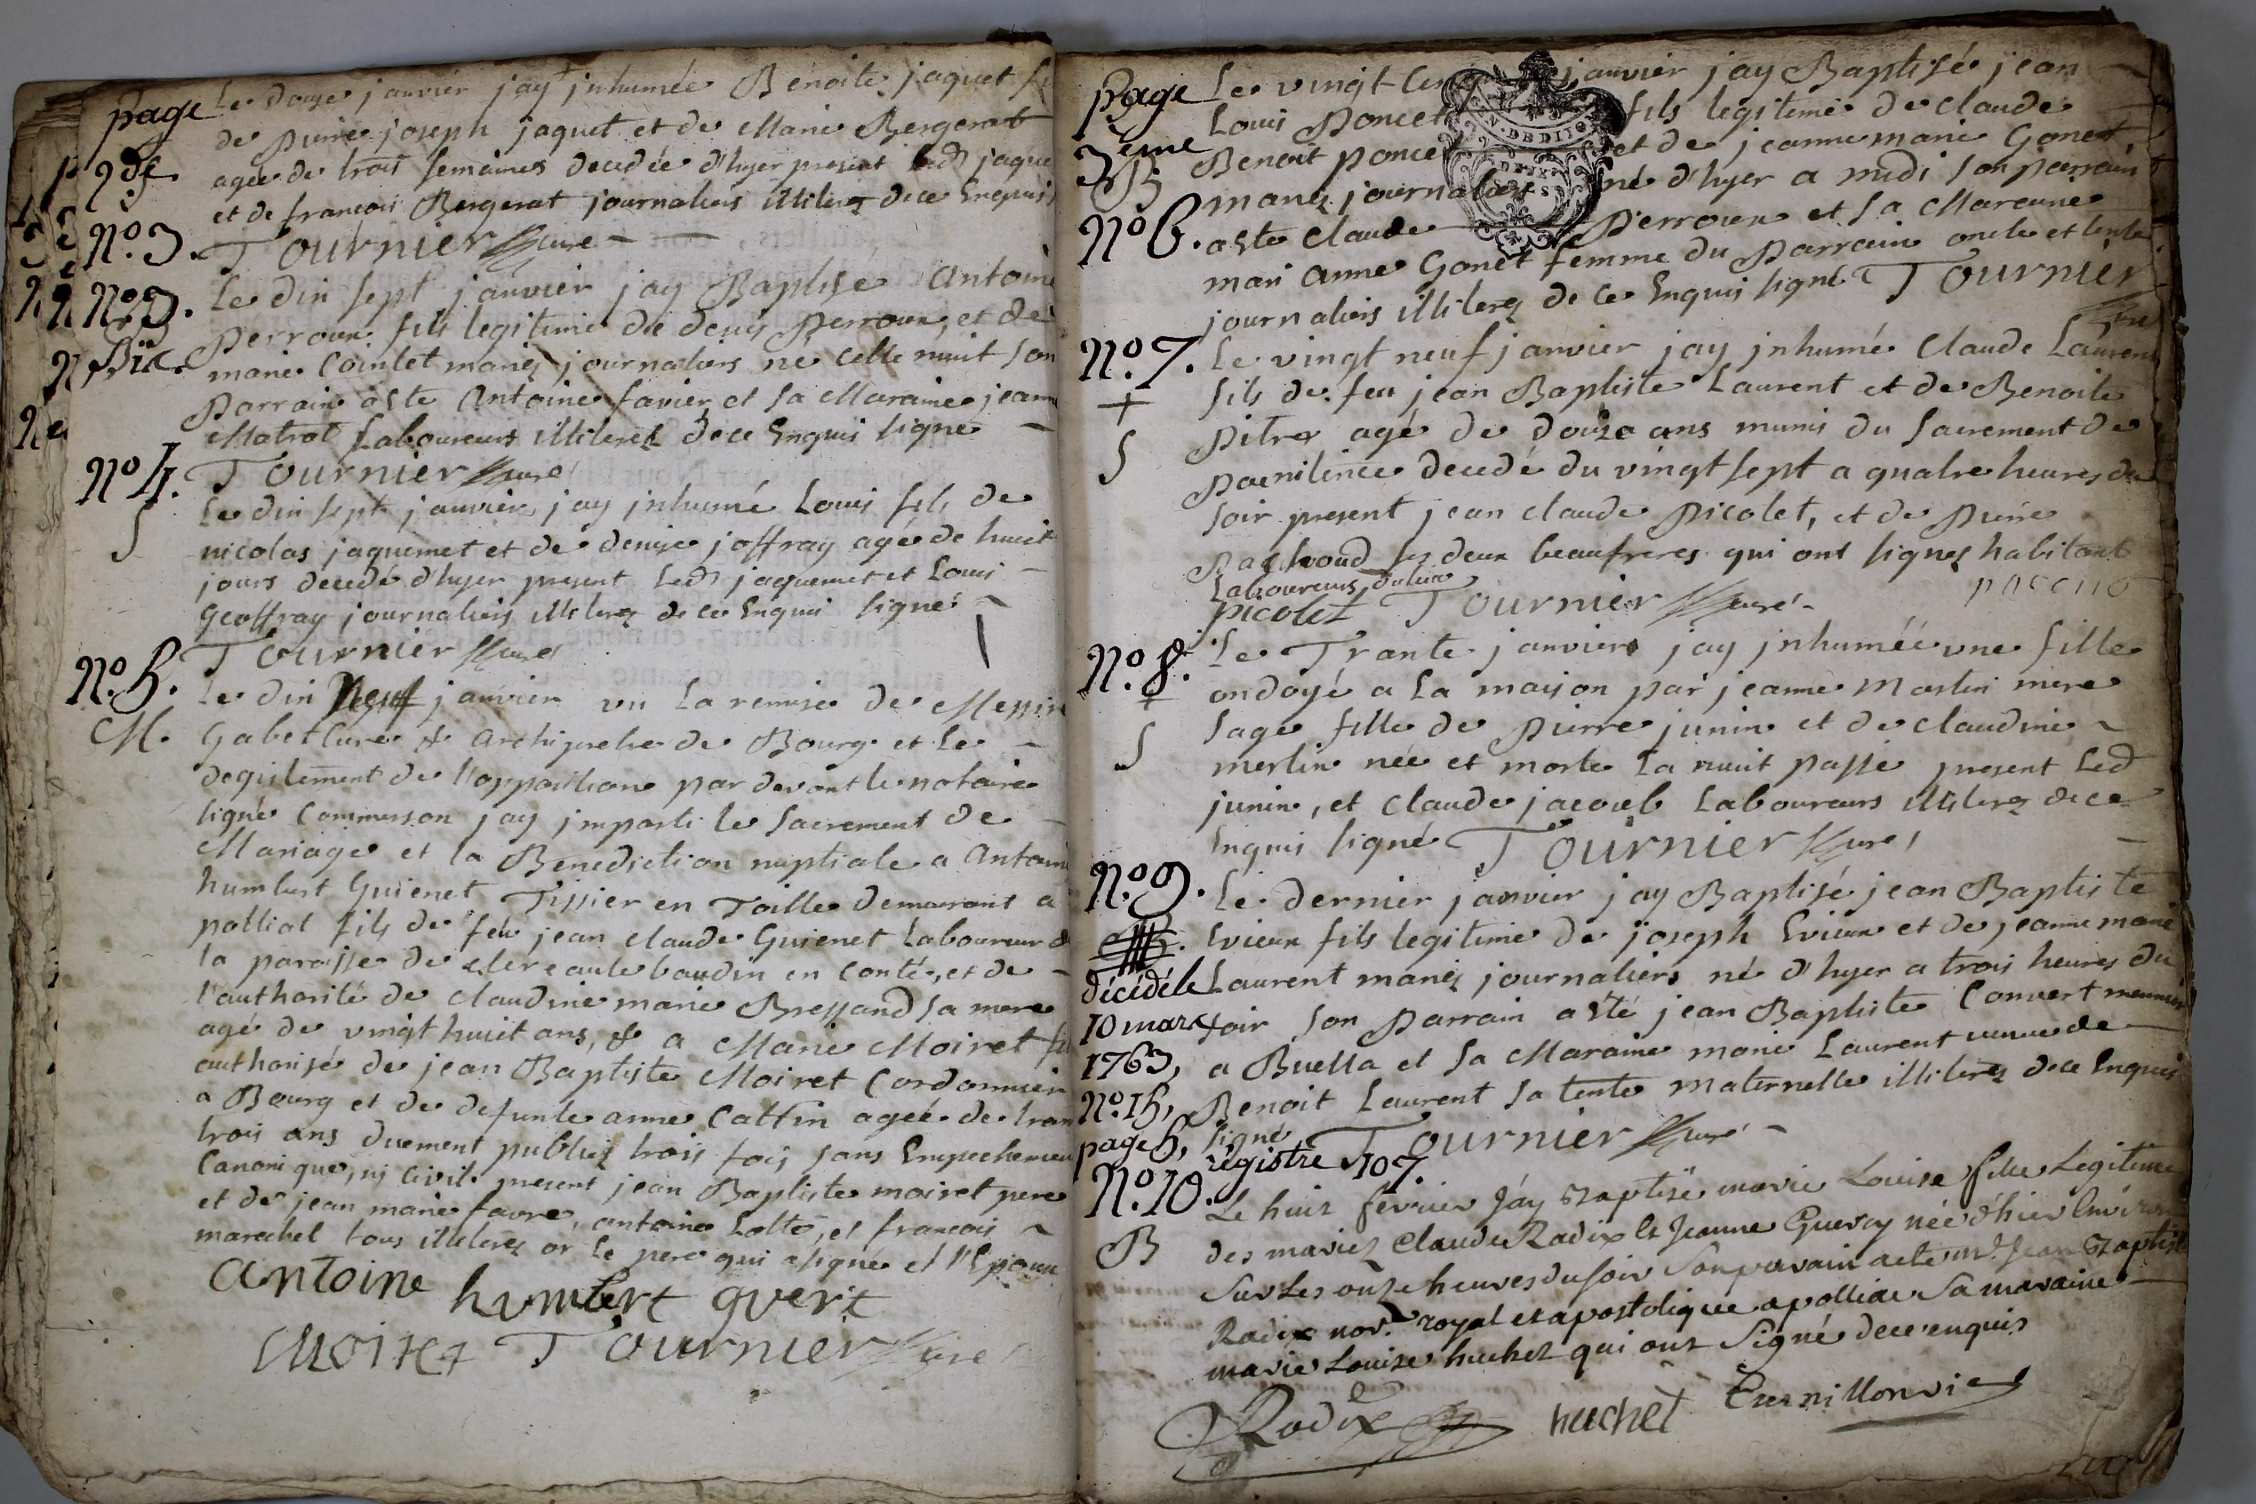 page
2de
Le douze janvier jay jnhumée Benoite jaquet fi
de Pierre joseph jaquet et de Marie Bergerat
agée de trois semaines decedée d'hyer present led jaque
et de francois Bergerat journaliers illiterez de ce Enquis
No. 3. Tournier Curé
Le dix sept janvier jay Baptisé Antoine
Perroux fils legitime de denis Perroux et de
marie Cointet mariez journaliers né cette nuit son
Parrain a été Antoine favier et sa Maraine jeanne
Matrat Laboureurs illiterez de ce Enquis signé
No 4. Tournier Curé
S
Le dix sept janvier jay jnhumé Louis fils de
nicolas jaquemet et de denise joffray agé de huit
jours decedé d'hyer present led jaquemet et Louis
Geoffray journaliers illiterez de ce Enquis signé
Tournier Curé
No. 5.
M.
Le dix Neuf janvier vu la remise de Messire
Gabet Curé & Archipretre de Bourg et le
degistement de l'opposition par devant le notaire
signé Commerson jay jmparti le Sacrement de
Mariage et la Benediction nuptiale a Antoine
humbert Guienet Tissier en Toille demeurant a
polliat fils de feu jean claude Guienet Laboureur d
la paroisse de en Conté, et de
l'authorité de Claudine marie Bressand sa mere
agé de vingt huit ans, & a Marie Moiret fi
authorisé de jean Baptiste Moiret Cordonnier
a Bourg et de defunte anne Cattin agée de tran
trois ans duement publiez trois fois sans Empechemen
Canonique, ny Civil present jean Baptiste moiret pere
et de jean marie favre, antoine Lotte, et francois
marechel tous illiterez or le pere qui a signé et l'Epoux
antoine humbert
Moiret Tournier Curé
page
3eme
B
No 6.
Le vingt janvier jay Baptisé jean
Louis Poncet fils legitime de Claude
Benoit poncet et de jeanne marie Gonet
mariez journaliers né d'hyer a midi son parrain
a été Claude Perroux et sa Maraine
mari anne Gonet femme du Parrain oncle et tente
journaliers illiterez de ce Enquis signé Tournier
Curé
No. 7.
+
S
Le vingt neuf janvier jay jnhumé Claude Laurent
fils de feu jean Baptiste Laurent et de Benoite
Pitrex agé de douze ans munis du Sacrement de
Poenitence decedé du vingt sept a quatre heures du
soir present jean claude Picolet, et de Pierre
Pachoud ses deux beaufreres qui ont signez habitant
Laboureurs
picolet Tournier Curé
No. 8.
+
S
Le Trante janvier jay jnhumée une fille
ondoyé a la maison par jeanne Martin mere
sage fille de Pierre junin et de Claudine
merlin née et morte la nuit passé present led
junin, et Claude jacoub Laboureurs illiterez de ce
Enquis signé Tournier Curé
No. 9.
Le dernier janvier jay Baptisé jean Baptiste
Evieux fils legitime de joseph Evieux et de jeanne marie
Laurent mariez journaliers né d'hyer a trois heures du
soir son Parrain a été jean Baptiste Convert meunier
a Buella et sa Maraine marie Laurent veuve de
Benoit Laurent sa tente maternelle illiterez de ce Enquis
signé Tournier Curé
décédé le
10 mars
1763,
No. 15,
page 5,
régistre 107.
No. 10.
B
Le huit fevrier j'áy Baptisé marie Louise fille Legitime
des mariez Claude Radix et Jeanne Guersy née d'hier Environ
sur Les onze heures du soir son parain a été mr. Jean Baptiste
Radix nore. royal et apostolique a polliat sa maraine
marie Louise huchet qui ont Signé de ce enquis
Radix huchet